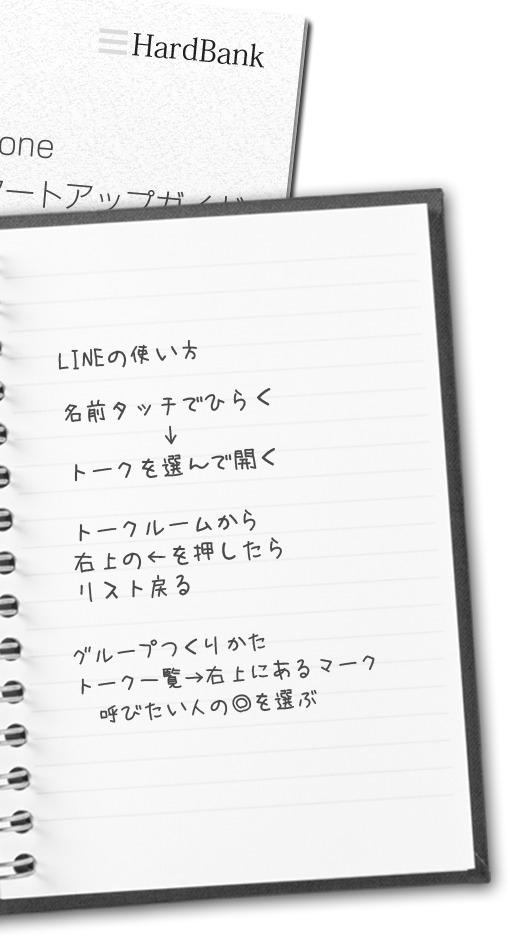 HardBank
one
ートアップガイド
LINEの使い方
名前タッチでひらく
↓
トークを選んで開く
トークルームから
右上の←を押したら
リスト戻る
グループつくりかた
トーク一覧→右上にあるマーク
呼びたい人の◎を選ぶ